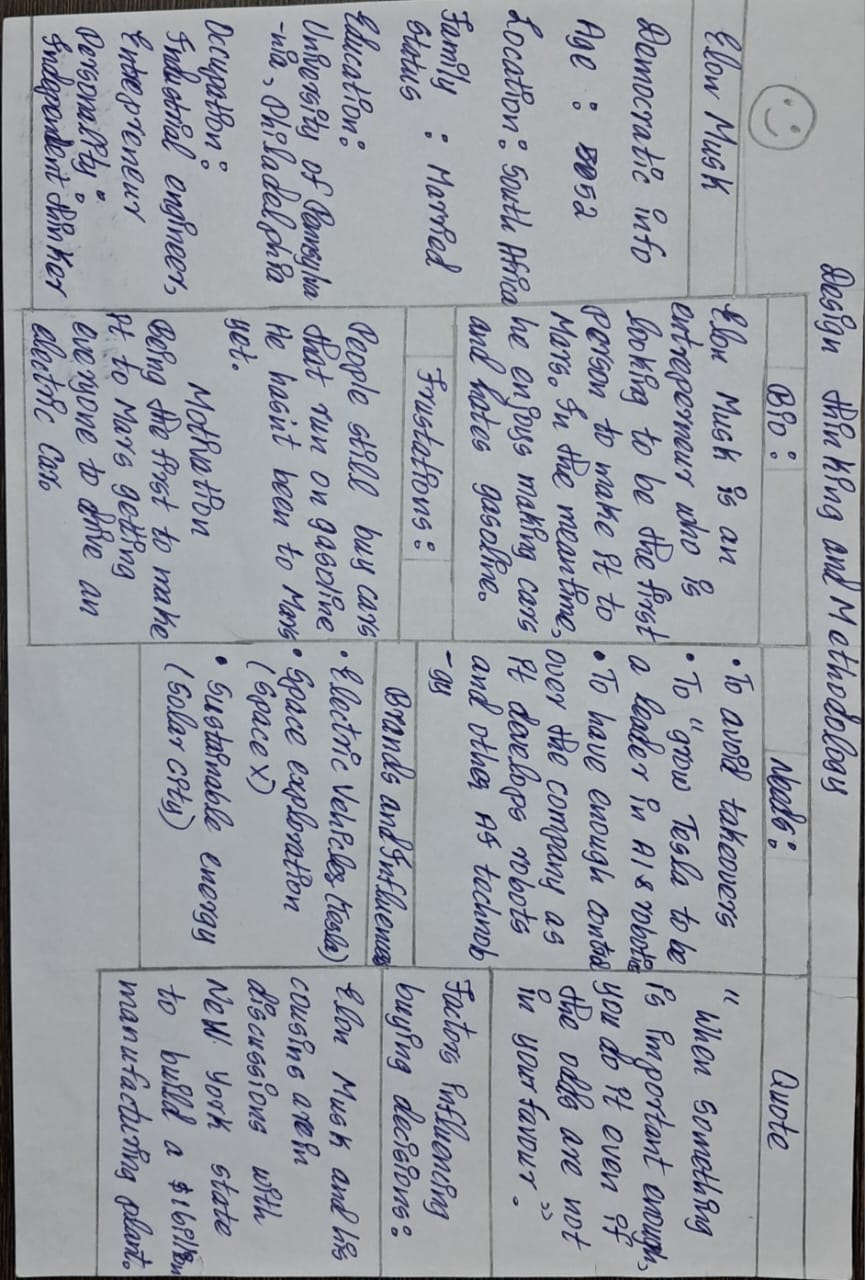 Design thinking and Methodology
Elon Musk
Democratic info
Age : 52
Location : South Africa
Family : Married
Status
Education :
University of Pennsylva
-nia, Philadelphia
Occupation :
Industrial engineer,
Entrepreneur
Personality :
Independent thinker
Bio :
Elon Musk is an
entreperneur who is
looking to be the first
person to make it to
Mars. In the meantime,
he enjoys making cars
and hates gasoline.
Frustations :
People still buy cars
that run on gasoline
He hasn't been to Mars
yet.
Motivation
Being the first to make
it to Mars getting
everyone to drive an
electric car.
Needs :
• To avoid takeovers
• To "grow Tesla to be
a leader in AI & robotics
• To have enough control
over the company as
it develops robots
and other AI technol
-gy
Brands and Influences
• Electric Vehicles (Tesla)
• Space exploration
(Space X)
• Sustainable energy
(Solar City)
Quote
" When something
is important enough,
you do it even if
the odds are not
in your favour. "
Factors influencing
buying decisions :
Elon Musk and his
cousins are in
discussions with
New York state
to build a
manufacturing plant.